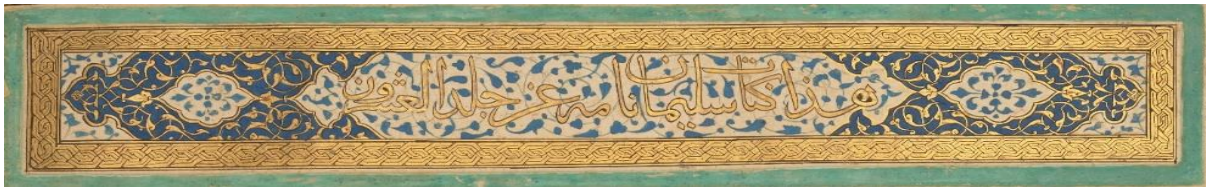 هذا كتاب سليمان نامه عن جلد العشرون